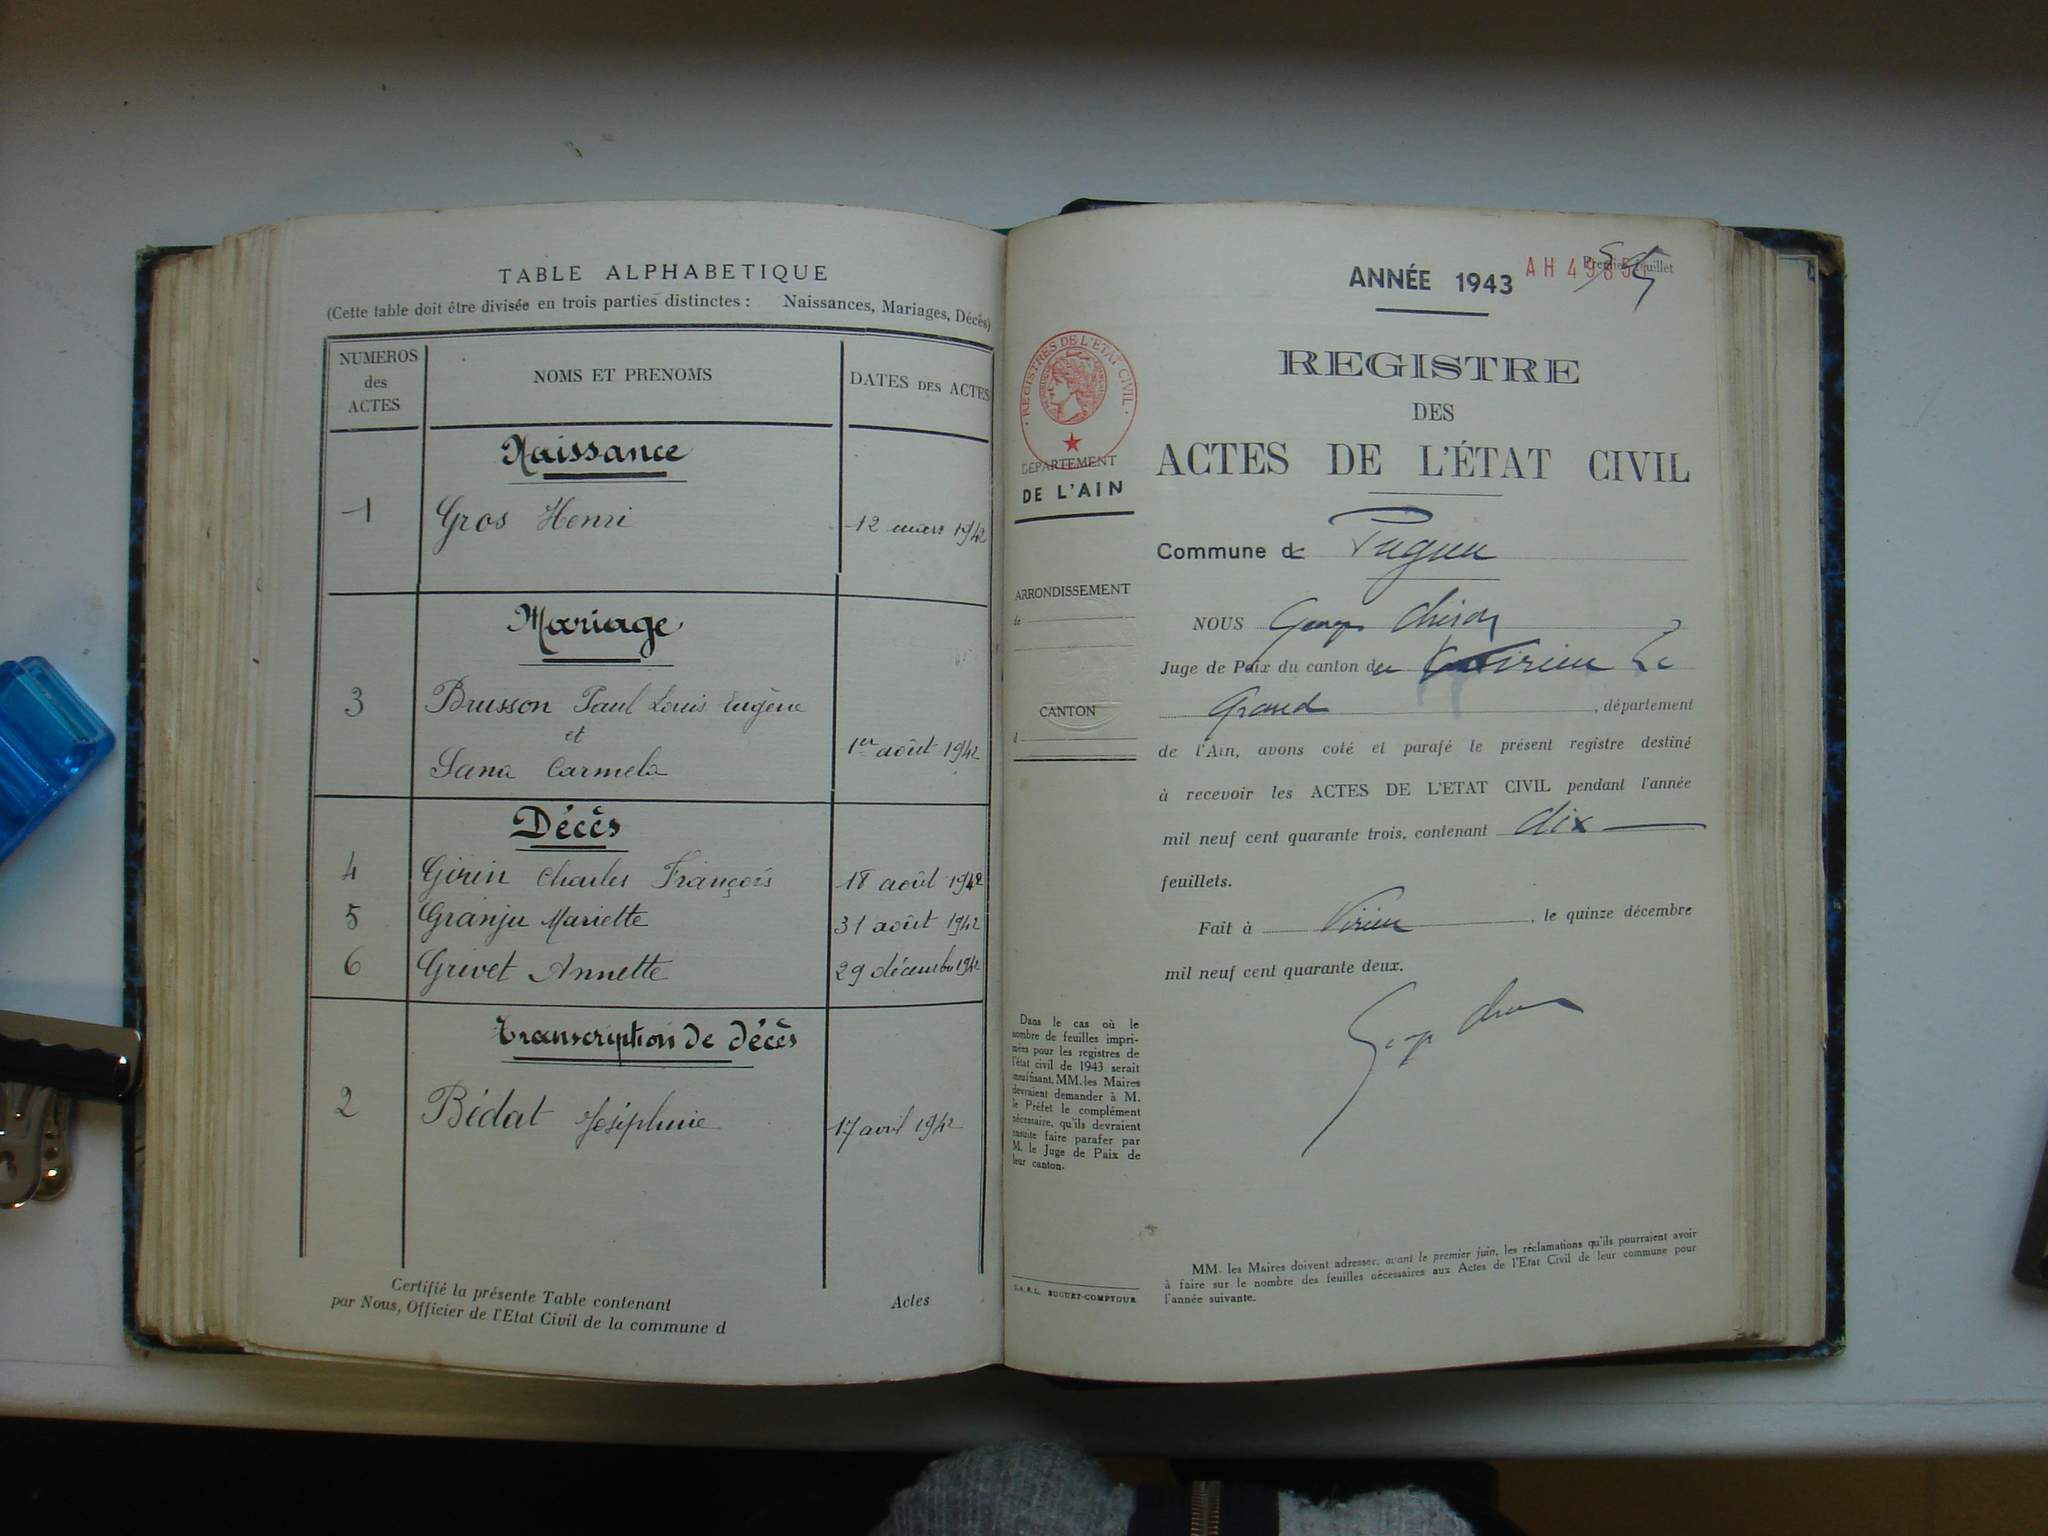 TABLE ALPHABETIQUE
(Cette table doit être divisée en trois parties distinctes : Naissances, Mariages, Décès)
NUMEROS
des
ACTES
NOMS ET PRENOMS
DATES DES ACTES
Naissance
1 Gros Henri 12 mars 1942
Mariage
3 Brusson Paul Louis Eugène
et
Sana Carmela 1er août 1942
Décès
4 Girin Charles François 18 août 1942
5 Granju Mariette 31 août 1942
6 Grivet Annette 29 décembre 1942
Transcription de décès
2 Bédat Joséphine 17 avril 1942
Certifié la présente Table contenant Actes
par Nous, Officier de l'Etat Civil de la commune d
ANNÉE 1943
Premier feuillet
REGISTRES DE L'ETAT CIVIL
REGISTRE
DES
ACTES DE L'ÉTAT CIVIL
DEPARTEMENT
DE L'AIN
Commune de Pugieu
ARRONDISSEMENT
de
NOUS Georges
Juge de Paix du canton de Virieu le
Grand, département
CANTON
d
de l'Ain, avons coté et parafé le présent registre destiné
à recevoir les ACTES DE L'ETAT CIVIL pendant l'année
mil neuf cent quarante trois, contenant dix
feuillets.
Fait à Virieu, le quinze décembre
mil neuf cent quarante deux.
Dans le cas où le
nombre de feuilles impri-
mées pour les registres de
l'état civil de 1943 serait
insuffisant, MM. les Maires
devraient demander à M.
le Préfet le complément
nécessaire, qu'ils devraient
ensuite faire parafer par
M. le Juge de Paix de
leur canton.
S.A.R.L. BUGUET-COMPTOUR
MM. les Maires doivent adresser, avant le premier juin, les réclamations qu'ils pourraient avoir
à faire sur le nombre des feuilles nécessaires aux Actes de l'Etat Civil de leur commune pour
l'année suivante.